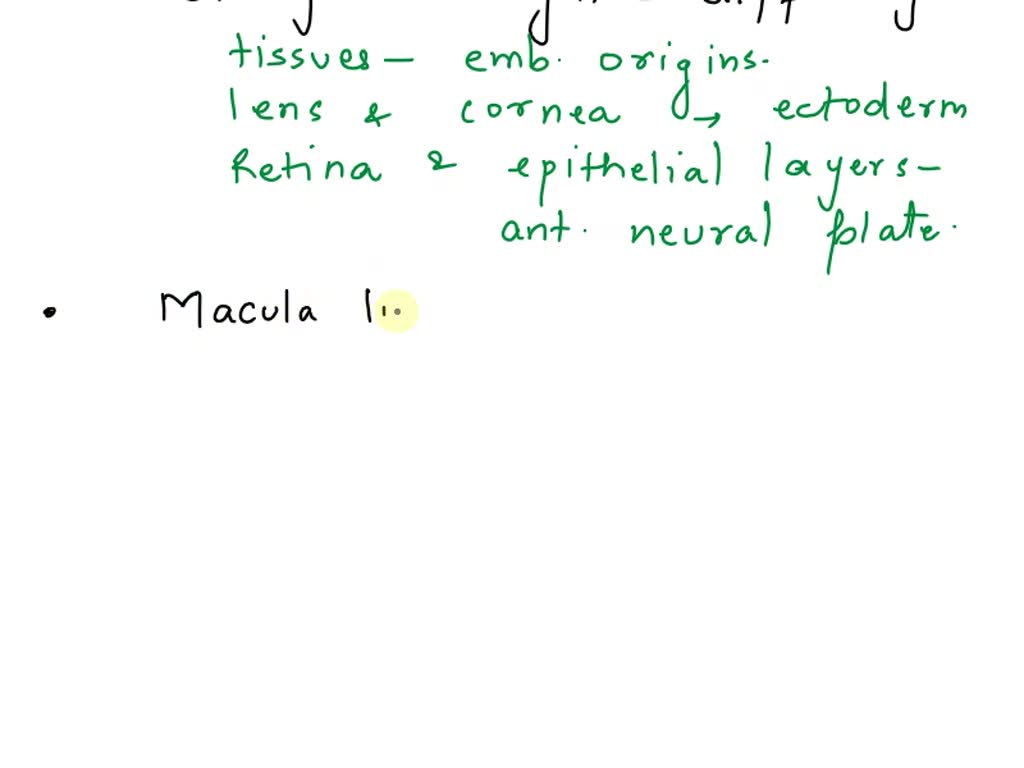 tissues — emb. origins.
lens & cornea → ectoderm
Retina & epithelial layers —
ant. neural plate.
• Macula